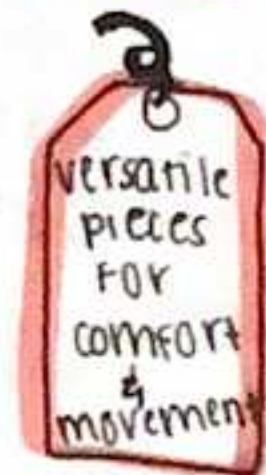 versatile
pieces
For
comfort
&
movement